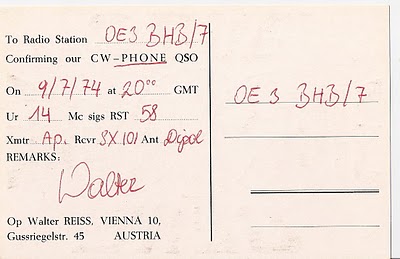 To Radio Station OE3 BHB/7
Confirming our CW-PHONE QSO
On 9/7/74 at 20°° GMT
Ur 14 Mc sigs RST 58
Xmtr Ap. Rcvr SX 101 Ant Dipol
REMARKS:
Walter
Op Walter REISS, VIENNA 10,
Gussriegelstr. 45 AUSTRIA
OE3 BHB/7